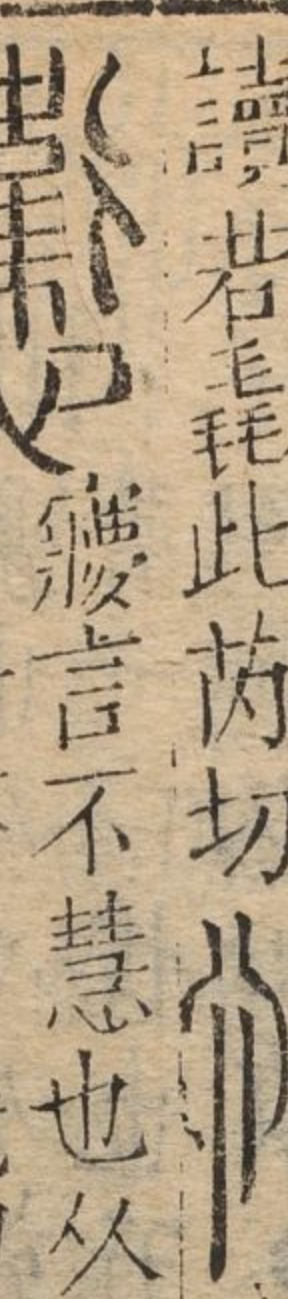 讀若毳此芮切
㝱言不慧也从